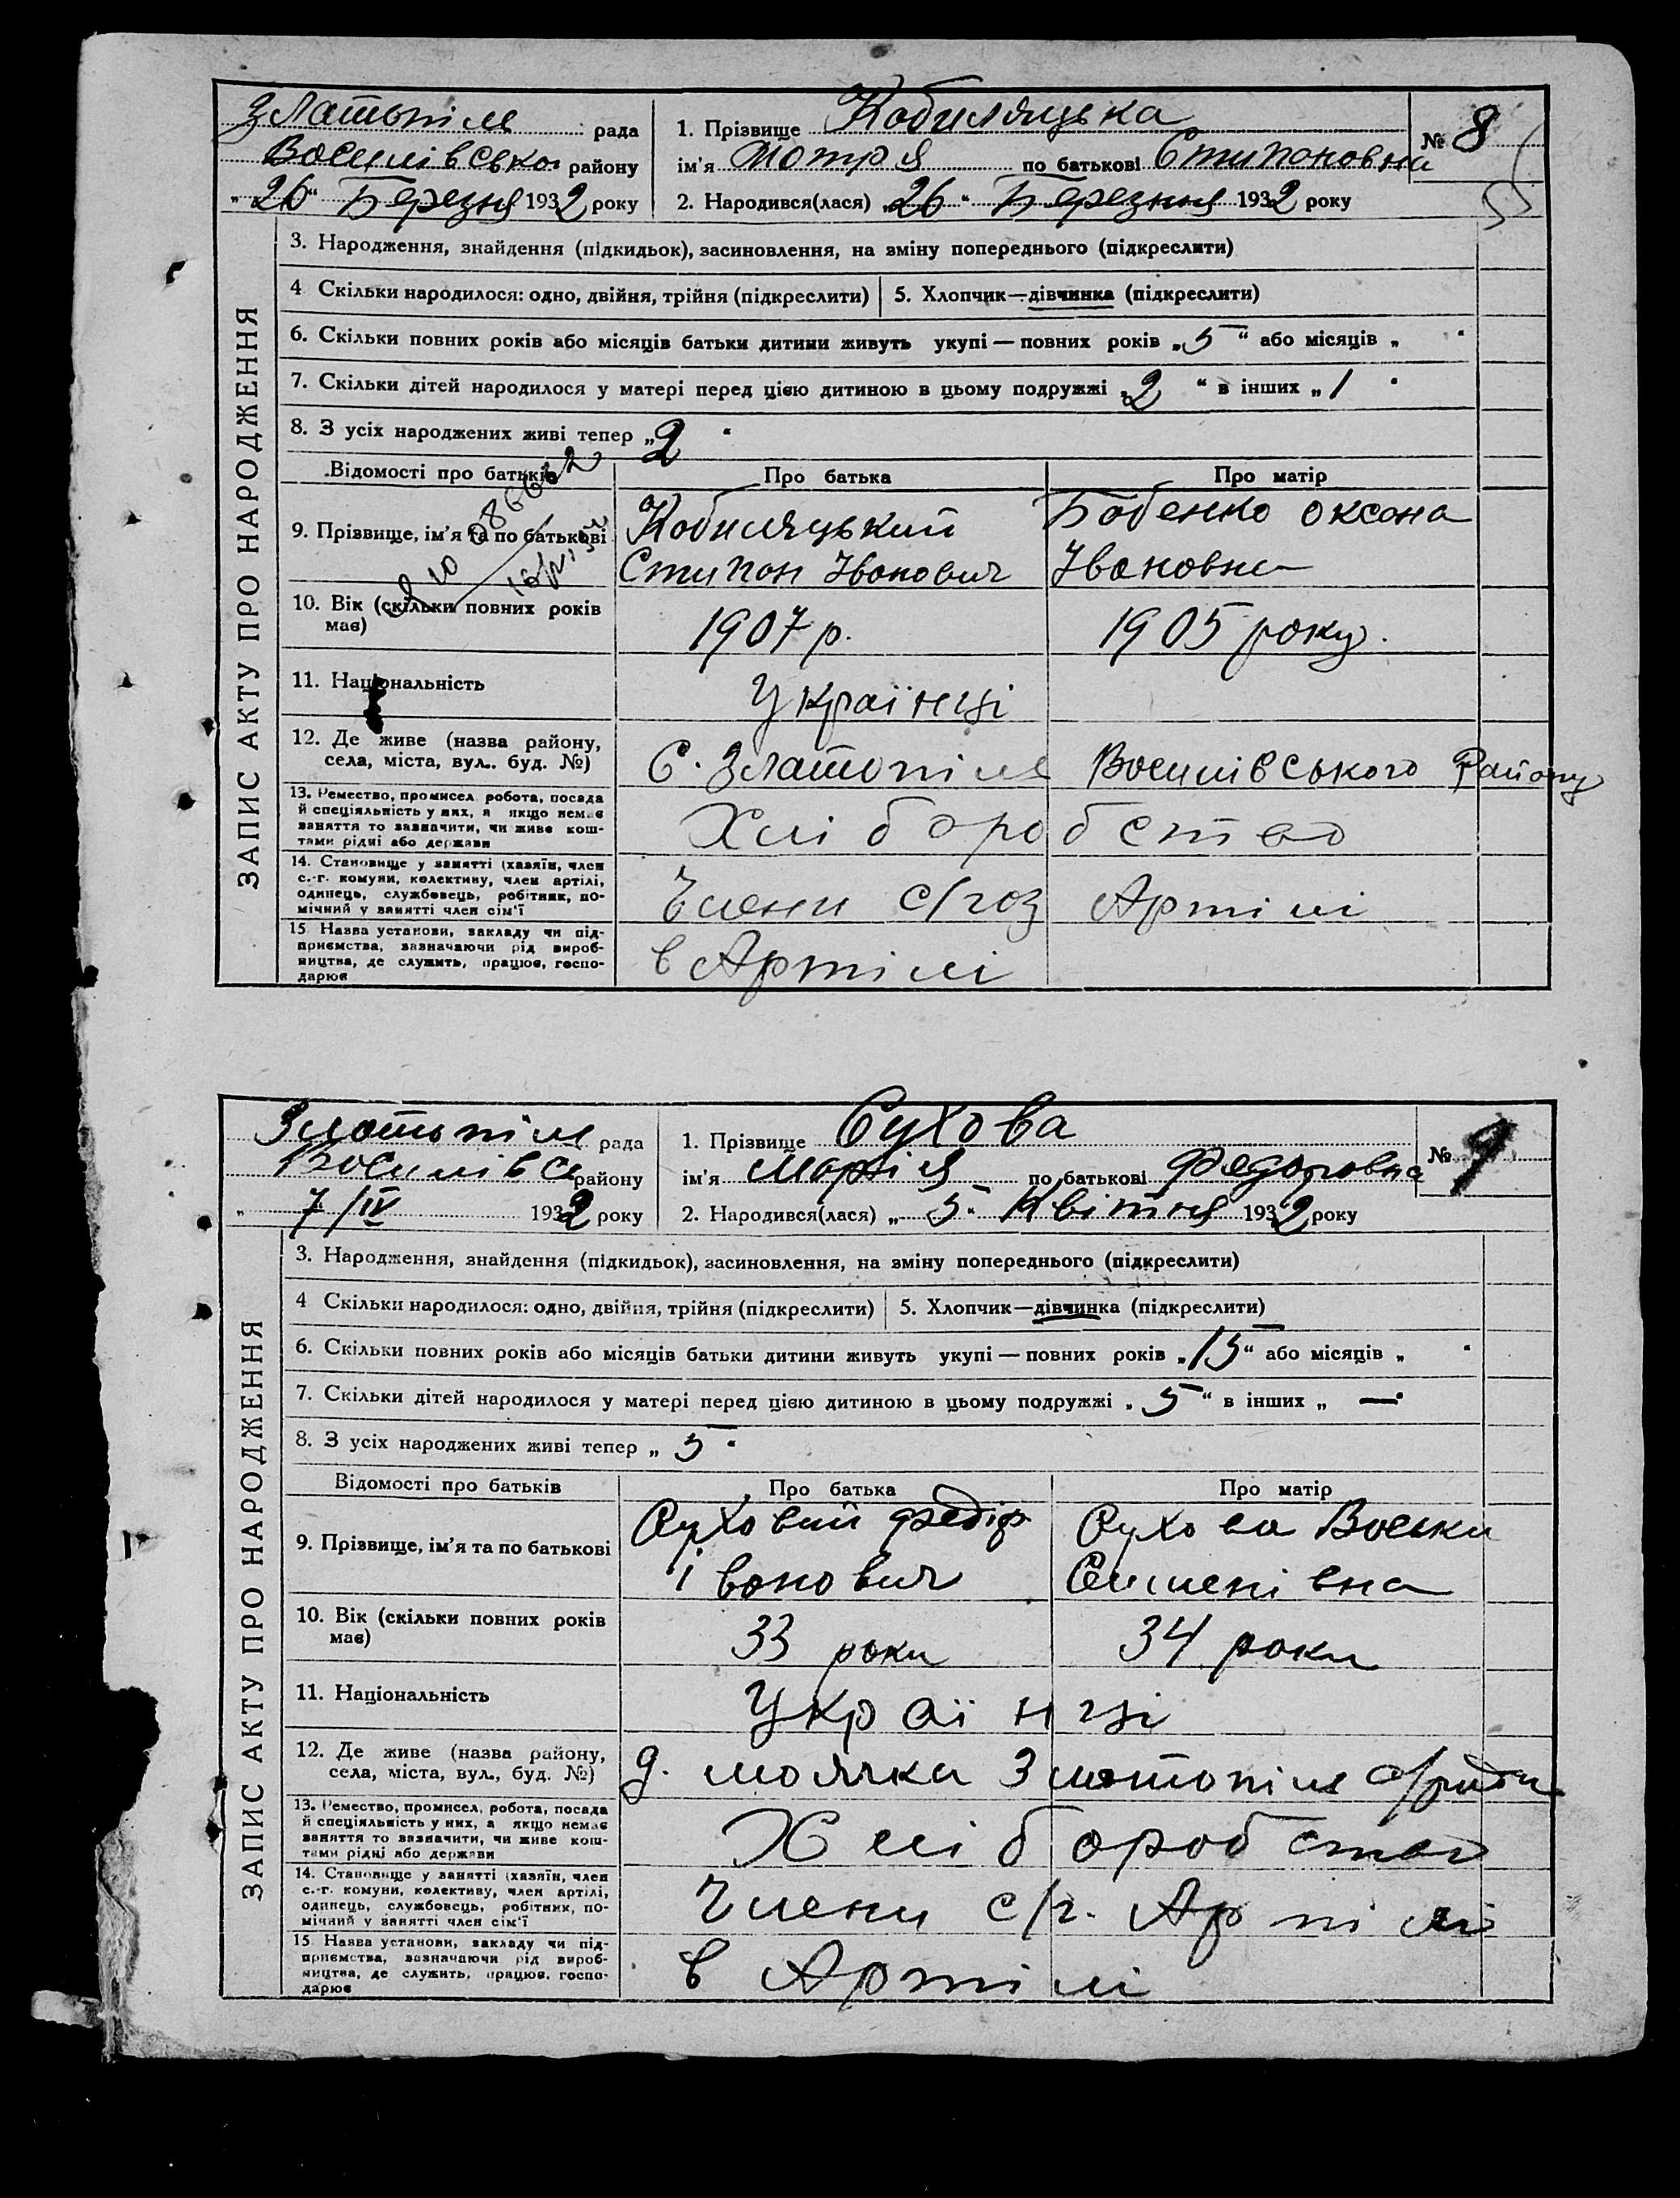 Златопіля рада
Василівсько району
„26“ Березня 1932 року
1. Прізвище Кобиляцька
ім'я Мотря по батькові Стипоновна
2. Народився(лася) „26“ Березня 1932 року
№ 8
ЗАПИС АКТУ ПРО НАРОДЖЕННЯ
3. Народження, знайдення (підкидьок), засиновлення, на зміну попереднього (підкреслити)
4 Скільки народилося: одно, двійня, трійня (підкреслити) 5. Хлопчик—дівчинка (підкреслити)
6. Скільки повних років або місяців батьки дитини живуть укупі — повних років „5“ або місяців „ “
7. Скільки дітей народилося у матері перед цією дитиною в цьому подружжі „2“ в інших „1“
8. З усіх народжених живі тепер „2“
Відомості про батьків Про батька Про матір
9. Прізвище, ім'я та по батькові Кобиляцький Бабенко Оксана
Стипон Іванович Івановна
10. Вік (скільки повних років має) 1907 р. 1905 року.
11. Національність Українці
12. Де живе (назва району, села, міста, вул.. буд. №) С. Златопіля Василівського Району
13. Ремество, промисел, робота, посада
й спеціяльність у них, а якщо немає
заняття то зазначити, чи живе кош-
тами рідні або держави
Хліборобство
14. Становище у занятті (хазяїн, член
с.-г. комуни, колективу, член артілі,
одинець, службовець, робітник, по-
мічний у занятті член сім'ї
Члени с/гоз Артілі
15. Назва установи, закладу чи під-
приємства, зазначаючи рід вироб-
ництва, де служить, працює, госпо-
дарює
в Артілі
Златопіля рада
Василівс району
7/IV 1932 року
1. Прізвище Сухова
ім'я Марія по батькові Федоровна
2. Народився(лася) „5“ Квітня 1932 року
№ 9
ЗАПИС АКТУ ПРО НАРОДЖЕННЯ
3. Народження, знайдення (підкидьок), засиновлення, на зміну попереднього (підкреслити)
4 Скільки народилося: одно, двійня, трійня (підкреслити) 5. Хлопчик—дівчинка (підкреслити)
6. Скільки повних років або місяців батьки дитини живуть укупі — повних років „15“ або місяців „ “
7. Скільки дітей народилося у матері перед цією дитиною в цьому подружжі „5“ в інших „—“
8. З усіх народжених живі тепер „5“
Відомості про батьків Про батька Про матір
9. Прізвище, ім'я та по батькові Суховий Федір Сухова Васька
Іванович Семенівна
10. Вік (скільки повних років має) 33 роки 34 роки
11. Національність Українці
12. Де живе (назва району, села, міста, вул., буд. №) д. Маячка Златопіля с/ради
13. Ремество, промисел, робота, посада
й спеціяльність у них, а якщо немає
заняття то зазначити, чи живе кош-
тами рідні або держави
Хліборобство
14. Становище у занятті (хазяїн, член
с.-г. комуни, колективу, член артілі,
одинець, службовець, робітник, по-
мічний у занятті член сім'ї
Члени с/г. Артілі
15. Назва установи, закладу чи під-
приємства, зазначаючи рід вироб-
ництва, де служить, працює, госпо-
дарює
в Артілі